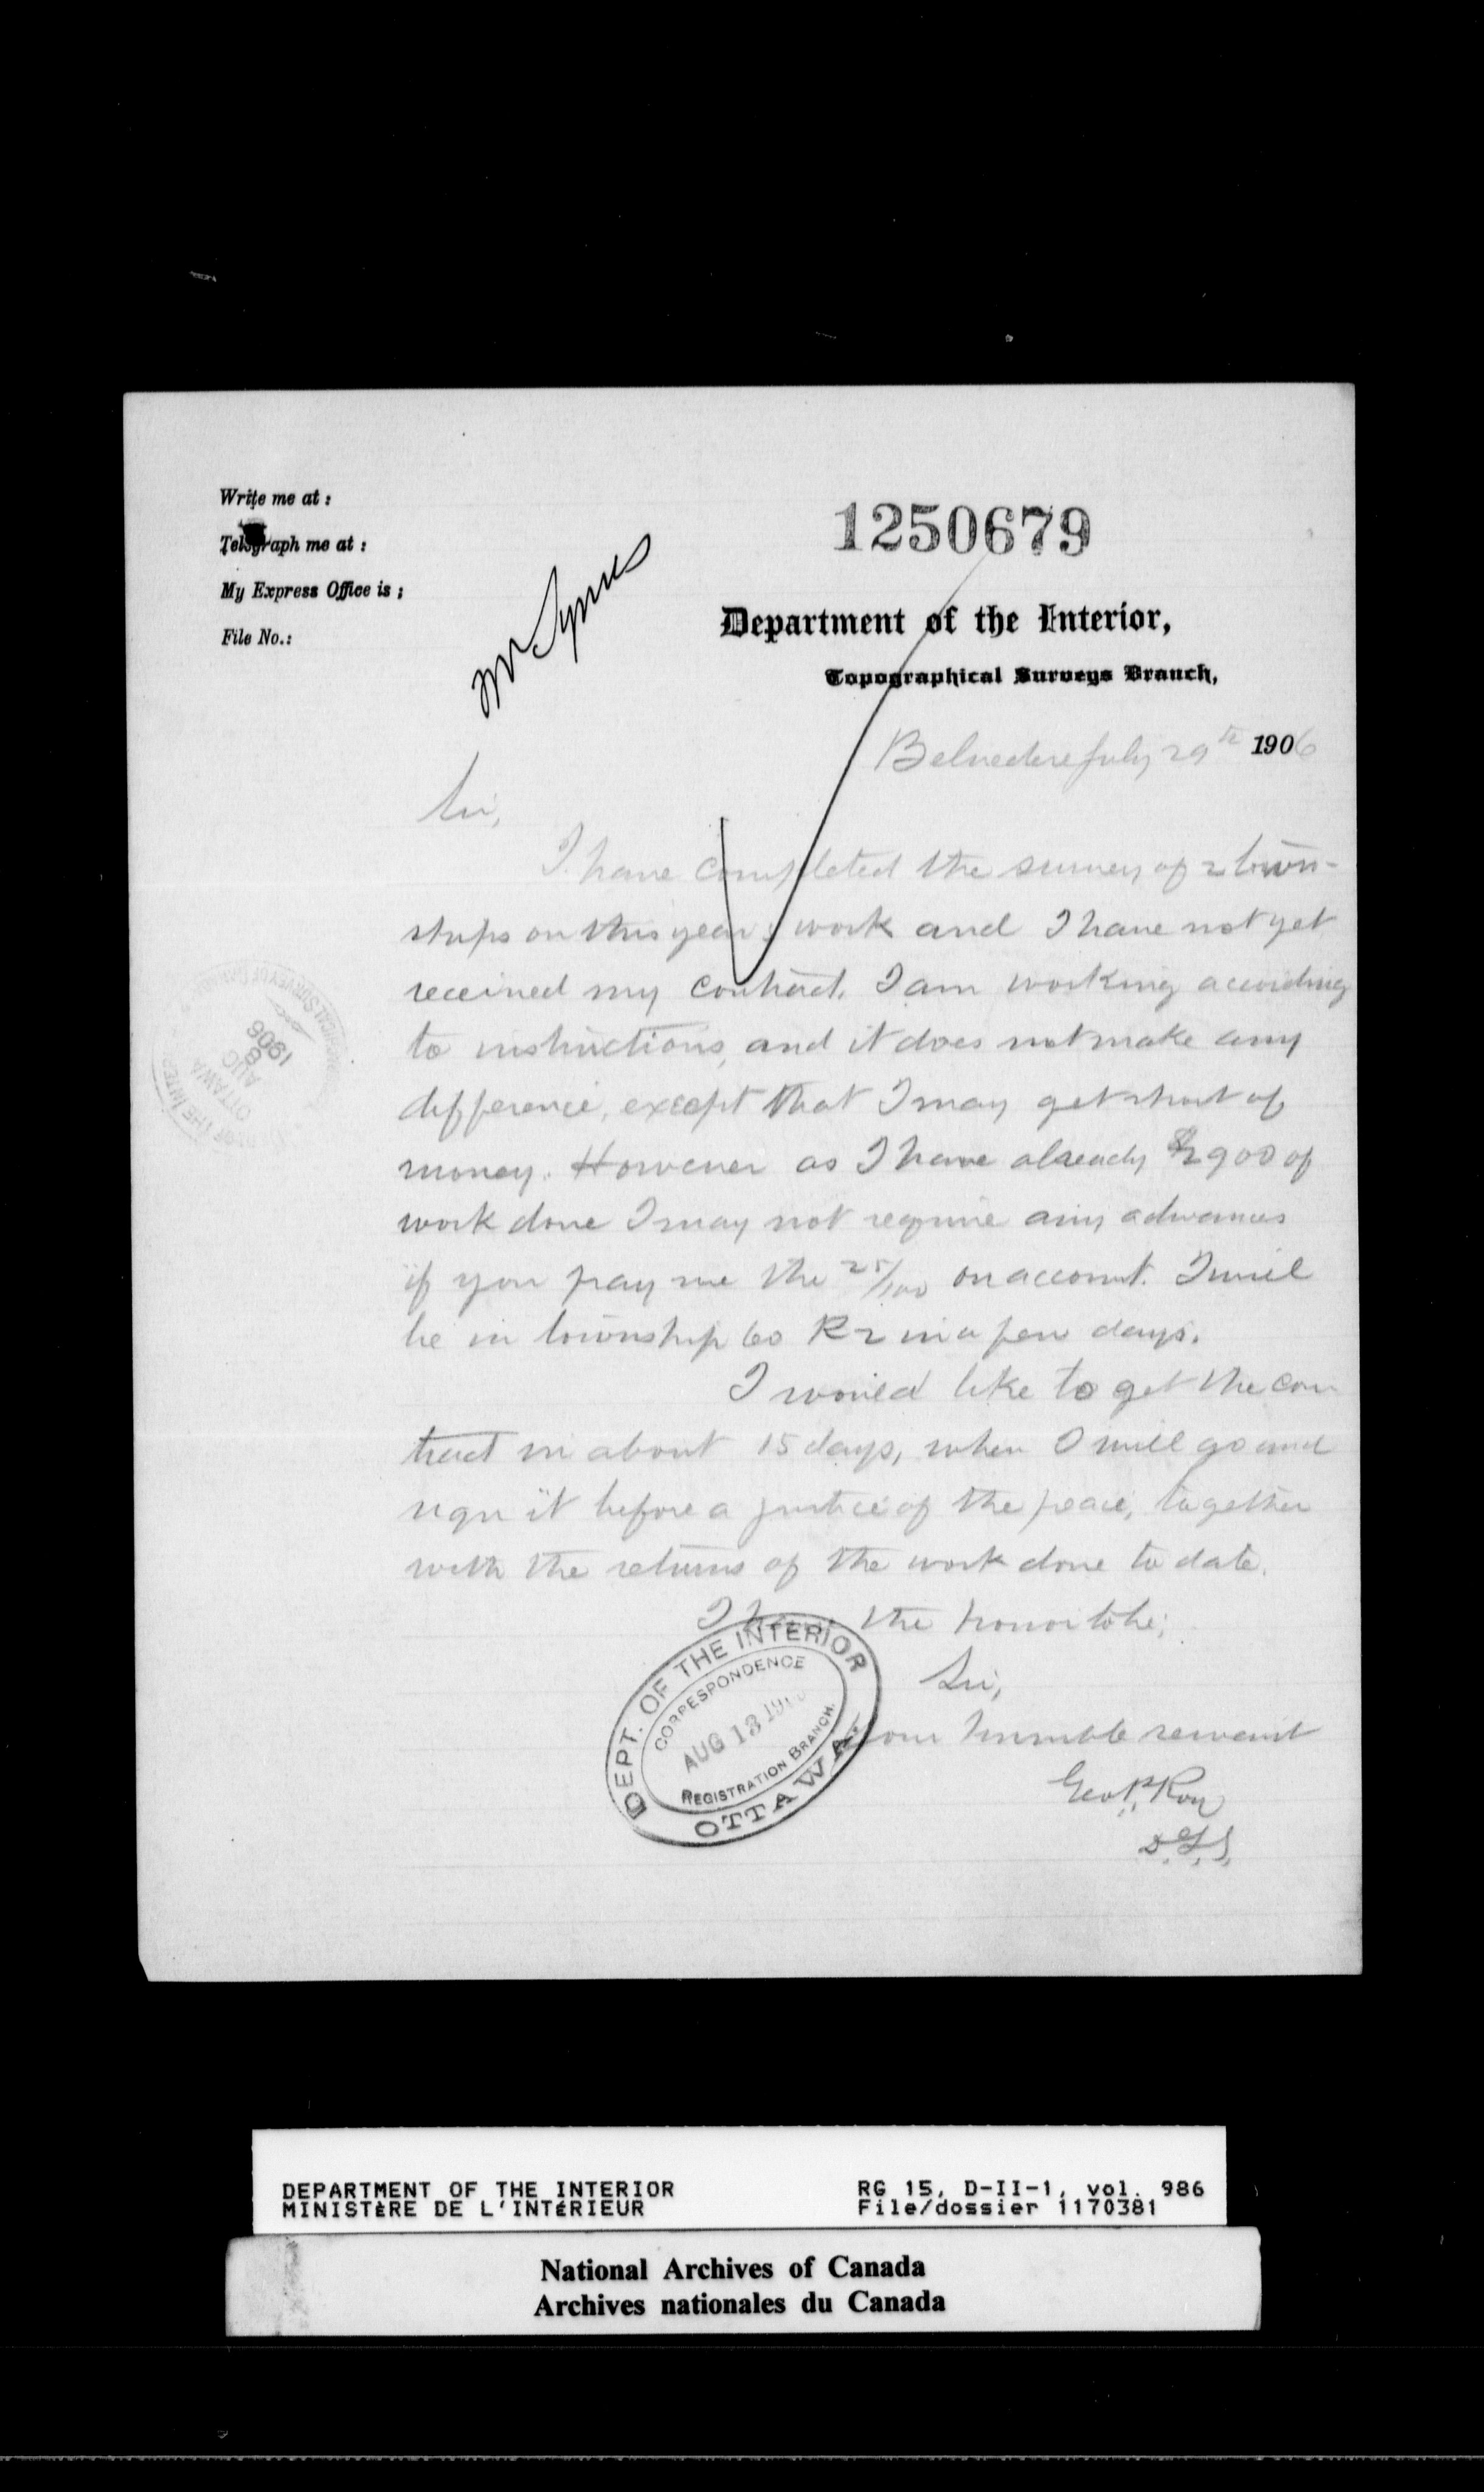 Write me at :
Telegraph me at :
My Express Office is ;
File No.:
1250679
Department of the Interior,
Topographical Surveys Branch,
Belvedere July 29th 1906
Sir,
I have completed the survey of 2 town-
ships on this years work and I have not yet
received my contract. I am working according
to instructions, and it does not make any
difference, except that I may get short of
money. However as I have already $2900 of
work done I may not require any advances
if you pay me the 25/100 on account. I will
be in township 60 R 2 in a few days.
I would like to get the con
tract in about 15 days, when I will go and
sign it before a justice of the peace, together
with the returns of the work done to date.
I the honor to be;
Sir,
your humble servant
Geo. P. Roy
D.L.S.
DEPT. OF THE INTERIOR
CORRESPONDENCE
AUG 13 190
REGISTRATION BRANCH.
OTTAWA
AUG 8 1906
OTTAWA
DEPARTMENT OF THE INTERIOR
MINISTÈRE DE L'INTÉRIEUR
RG 15, D-II-1, vol. 986
File/dossier 1170381
National Archives of Canada
Archives nationales du Canada